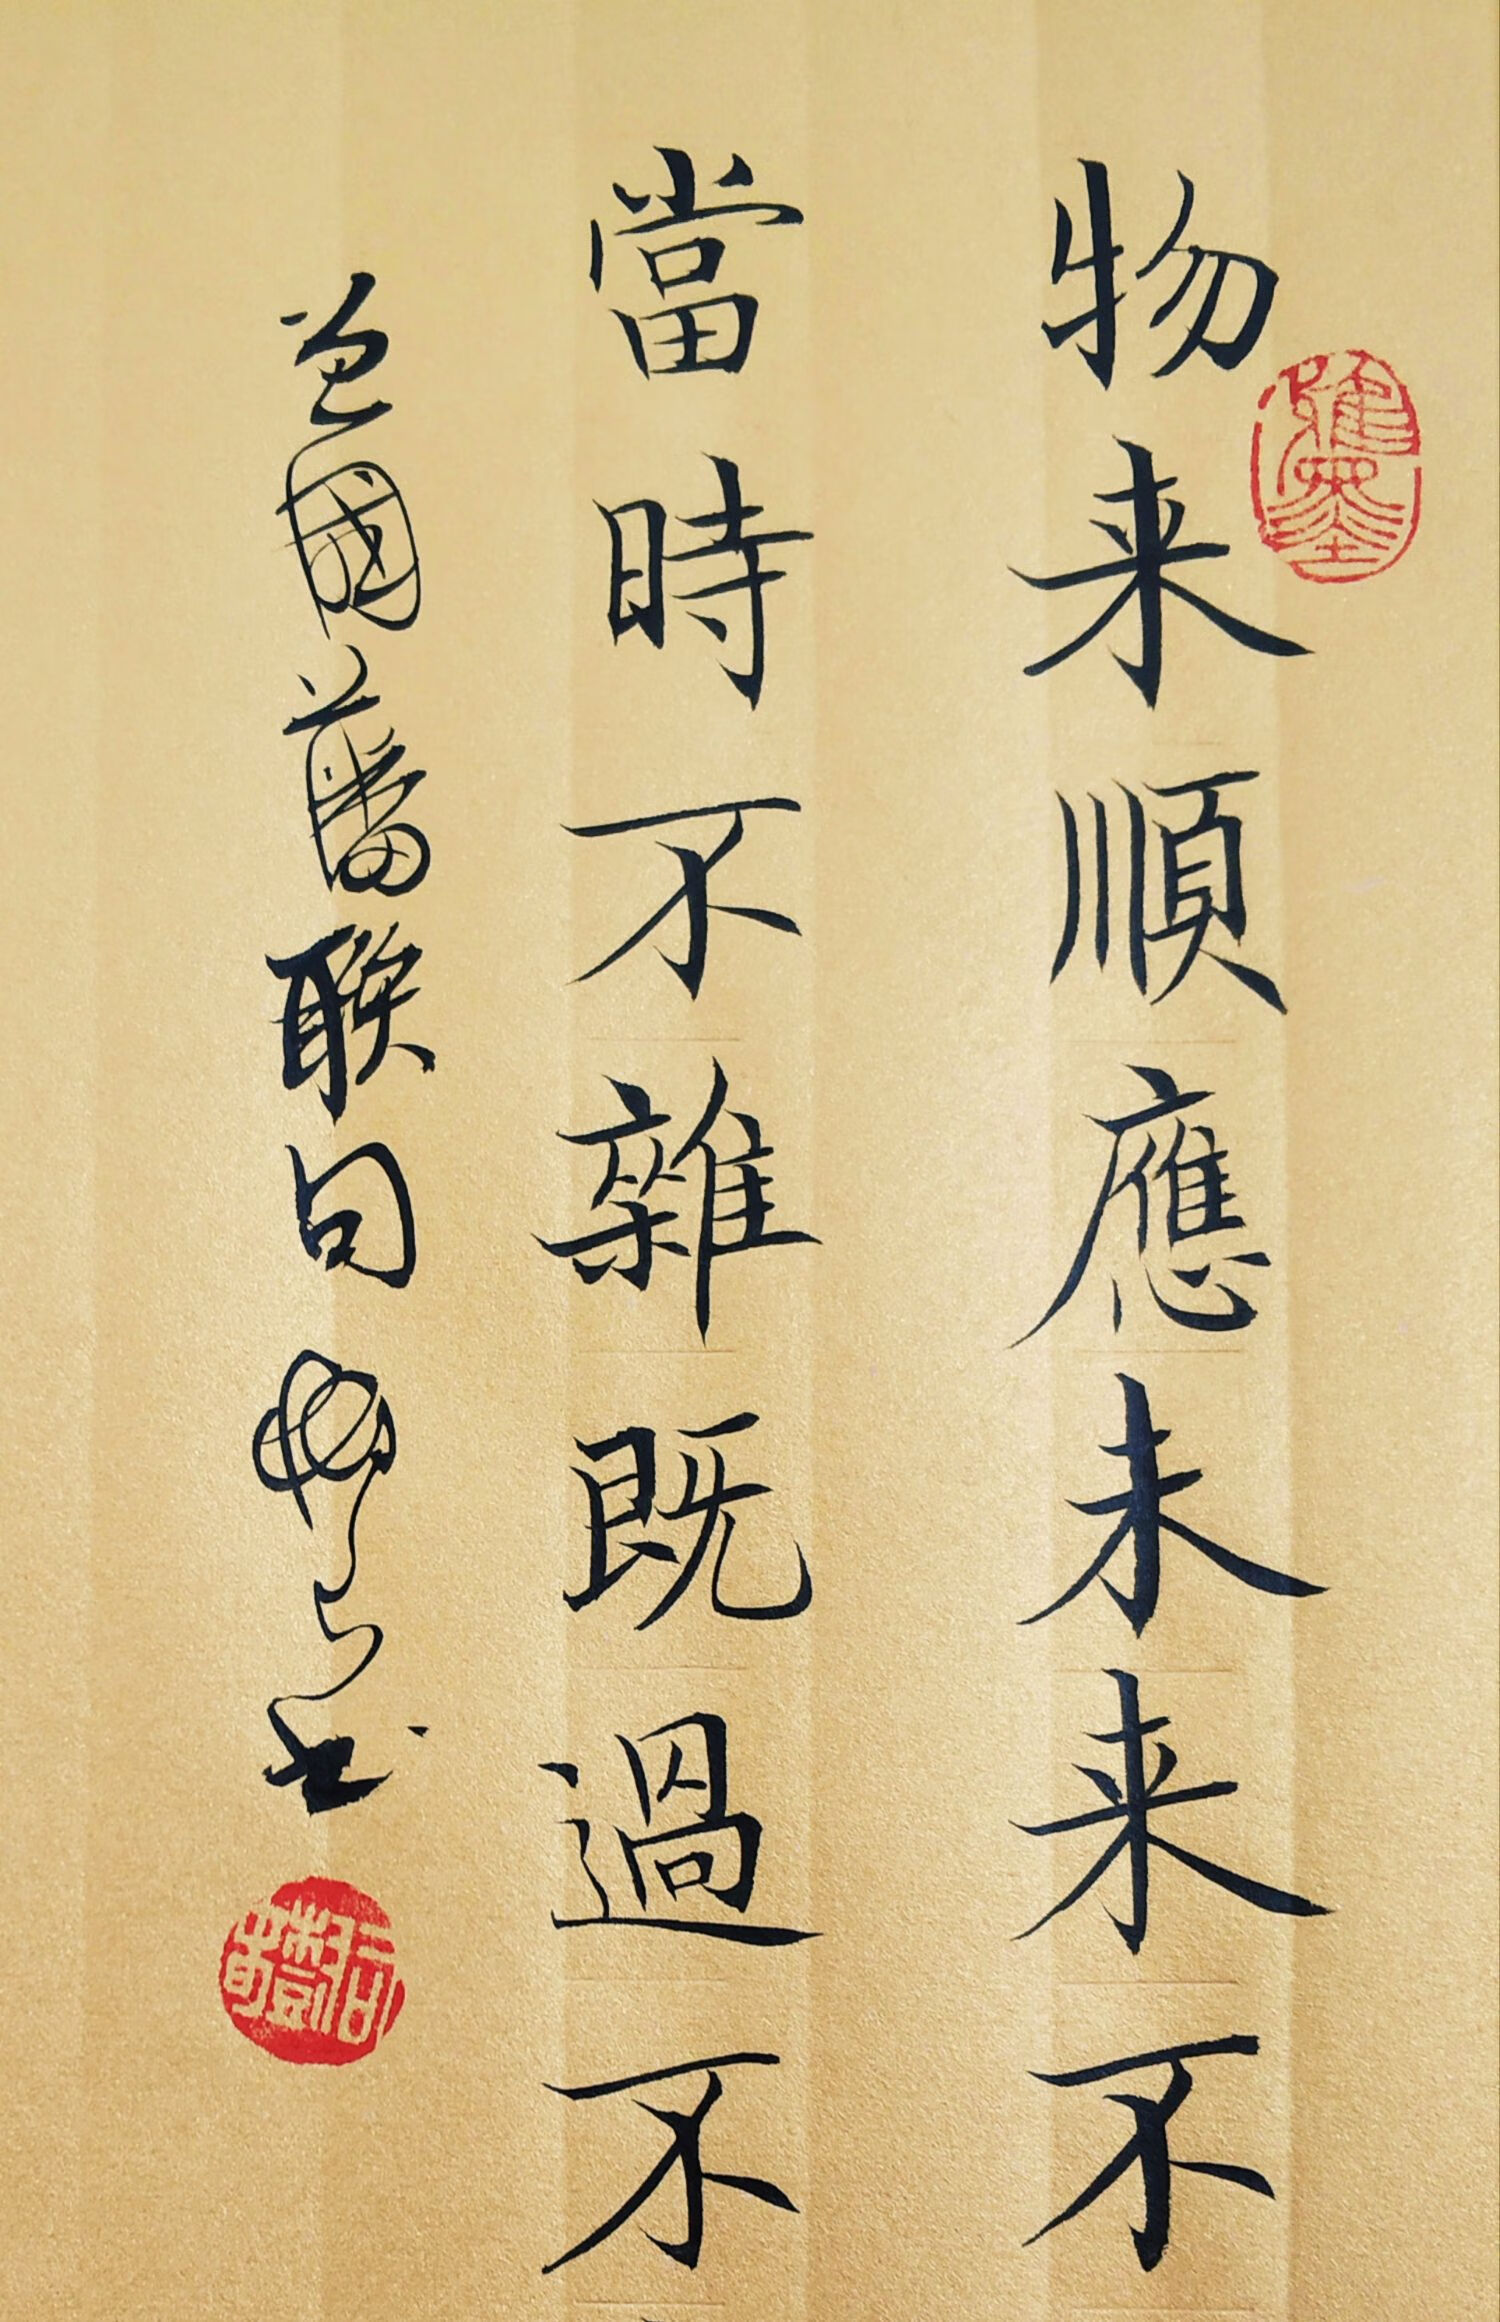 物来順應未来不
當時不雜既過不
曾國藩聯句
书